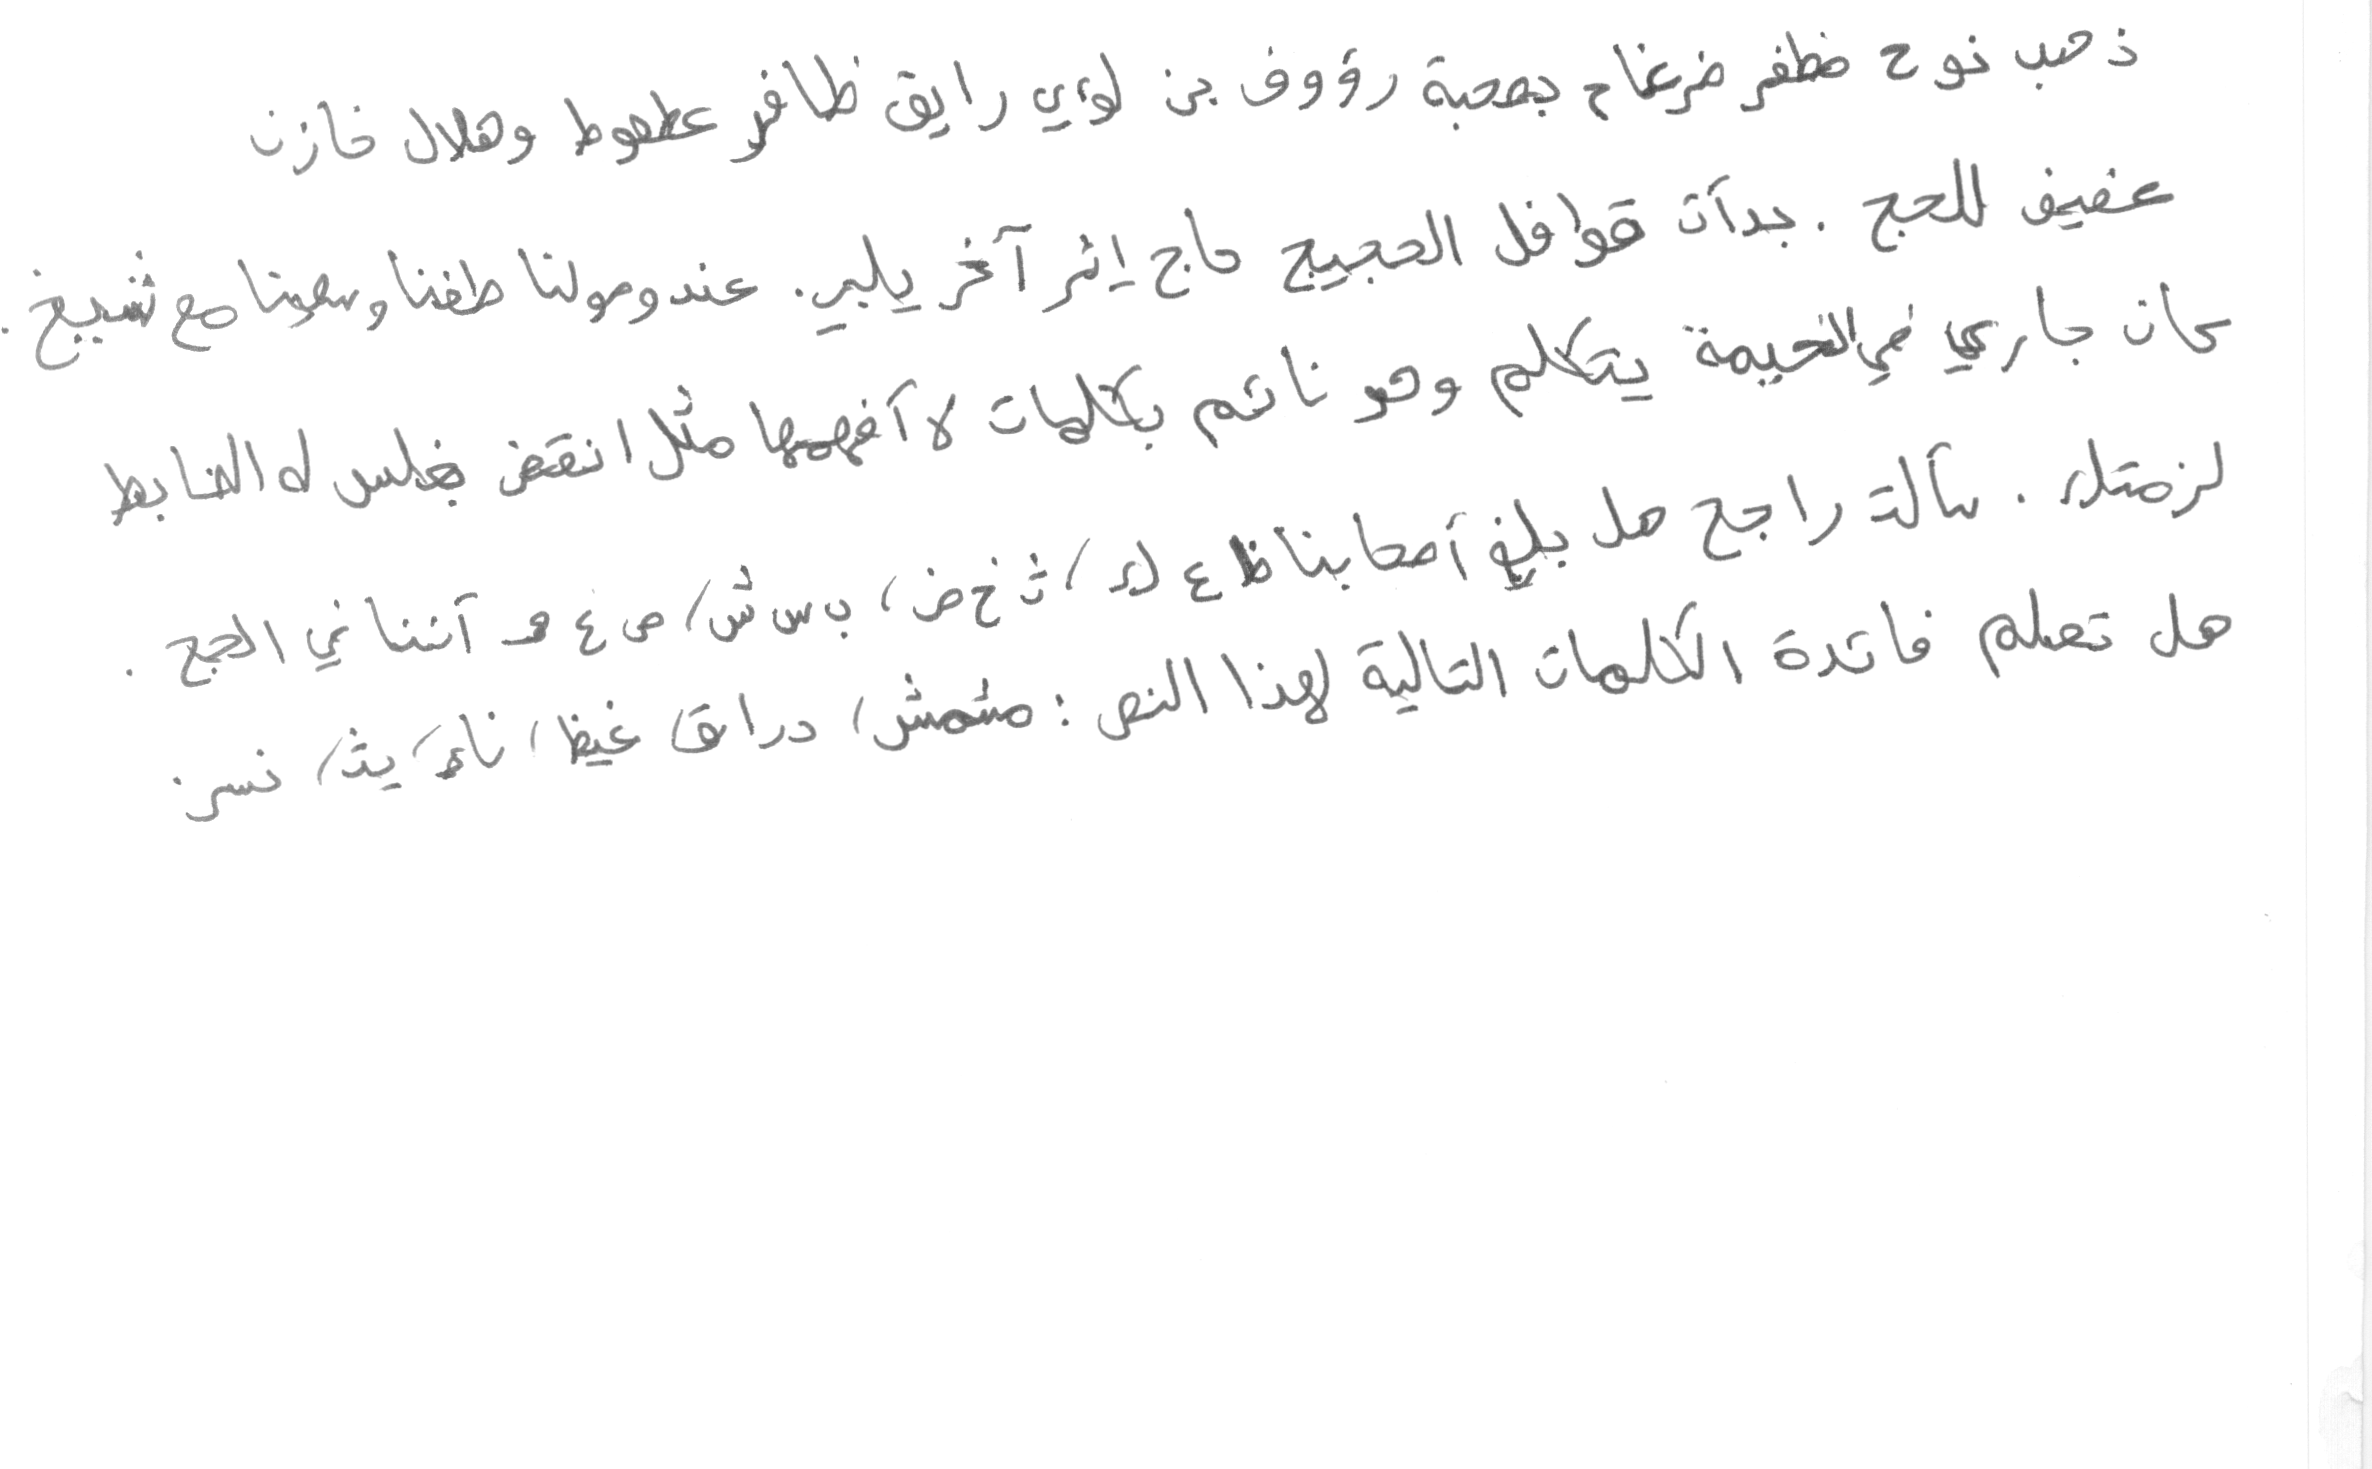 ذهب نوح مظفر ضرغام بصحبة رؤوف بن لؤي رايق ظافر عطعوط وهلال خازن
عفيف للحج . بدأت قوافل الحجيج حاج إثر آخر يلبي. عند وصولنا طفنا وسعينا مع شييغ .
كان جاري في الخيمة يتكلم وهو نائم بكلمات لا أفهمها مثل انقض بغلس له الضابط
لزمتك . سألت راجح هل بلغ أصحابنا ظ ع ك، ث خ ض، ب س ش، ص غ هـ أننا في الحج .
هل تعلم فائدة الكلمات التالية لهذا النص : مشمش، دراق، غيظ، ناء، يث، نسر.